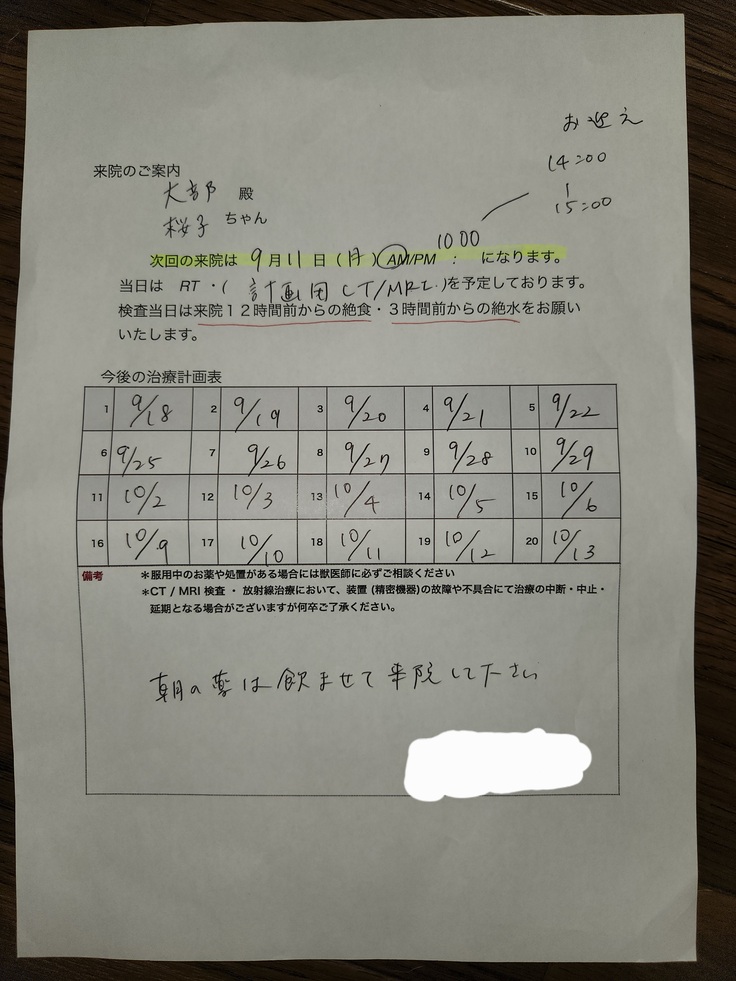 お迎え
14:00
|
15:00
来院のご案内
大部 殿
桜子 ちゃん
1000
次回の来院は 9月11日(月) AM/PM : になります。
当日は RT・(計画用CT/MRI.)を予定しております。
検査当日は来院12時間前からの絶食・3時間前からの絶水をお願い
いたします。
今後の治療計画表
1 9/18 2 9/19 3 9/20 4 9/21 5 9/22
6 9/25 7 9/26 8 9/27 9 9/28 10 9/29
11 10/2 12 10/3 13 10/4 14 10/5 15 10/6
16 10/9 17 10/10 18 10/11 19 10/12 20 10/13
備考 *服用中のお薬や処置がある場合には獣医師に必ずご相談ください
*CT / MRI 検査 ・ 放射線治療において、装置 (精密機器)の故障や不具合にて治療の中断・中止・
延期となる場合がございますが何卒ご了承ください。
朝の薬は飲ませて来院して下さい